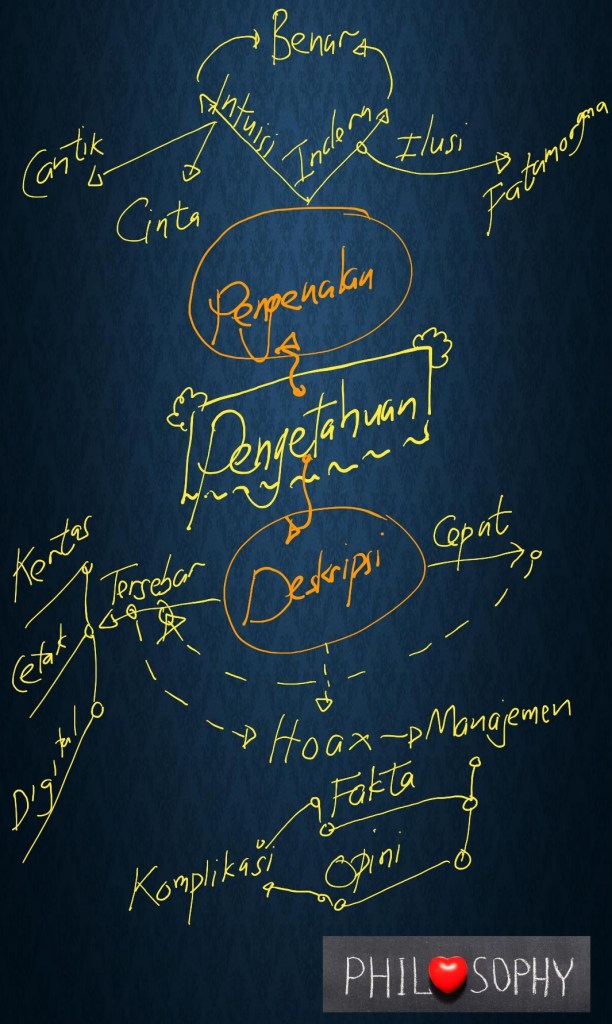 Benar
Intuisi
Indera
Ilusi
Fatamorgana
Cantik
Cinta
Pengenalan
Pengetahuan
Deskripsi
Cepat
Tersebar
Kertas
Cetak
Digital
Hoax
Manajemen
Fakta
Opini
Komplikasi
PHIL❤SOPHY